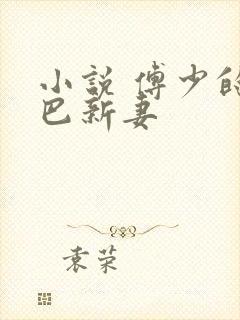 小説 傅少的
巴新妻
袁荣